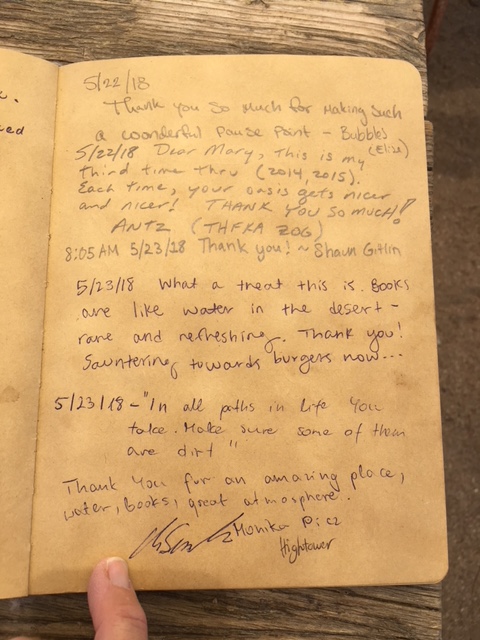 .
ed
5/22/18
Thank you so much for making such
a wonderful Pause Point - Bubbles
(Elize)
5/22/18 Dear Mary, this is my
third time thru (2014, 2015).
Each time, your oasis gets nicer
and nicer! THANK YOU SO MUCH!
ANTZ (THFKA ZOG)
8:05 AM 5/23/18 Thank you! ~ Shaun Gitlin
5/23/18 What a treat this is. Books
are like water in the desert -
rare and refreshing. Thank you!
Sauntering towards burgers now...
5/23/18 - "In all paths in life you
take. Make sure some of them
are dirt"
Thank you for an amazing place,
water, books, great atmosphere.
Monika
Hightower